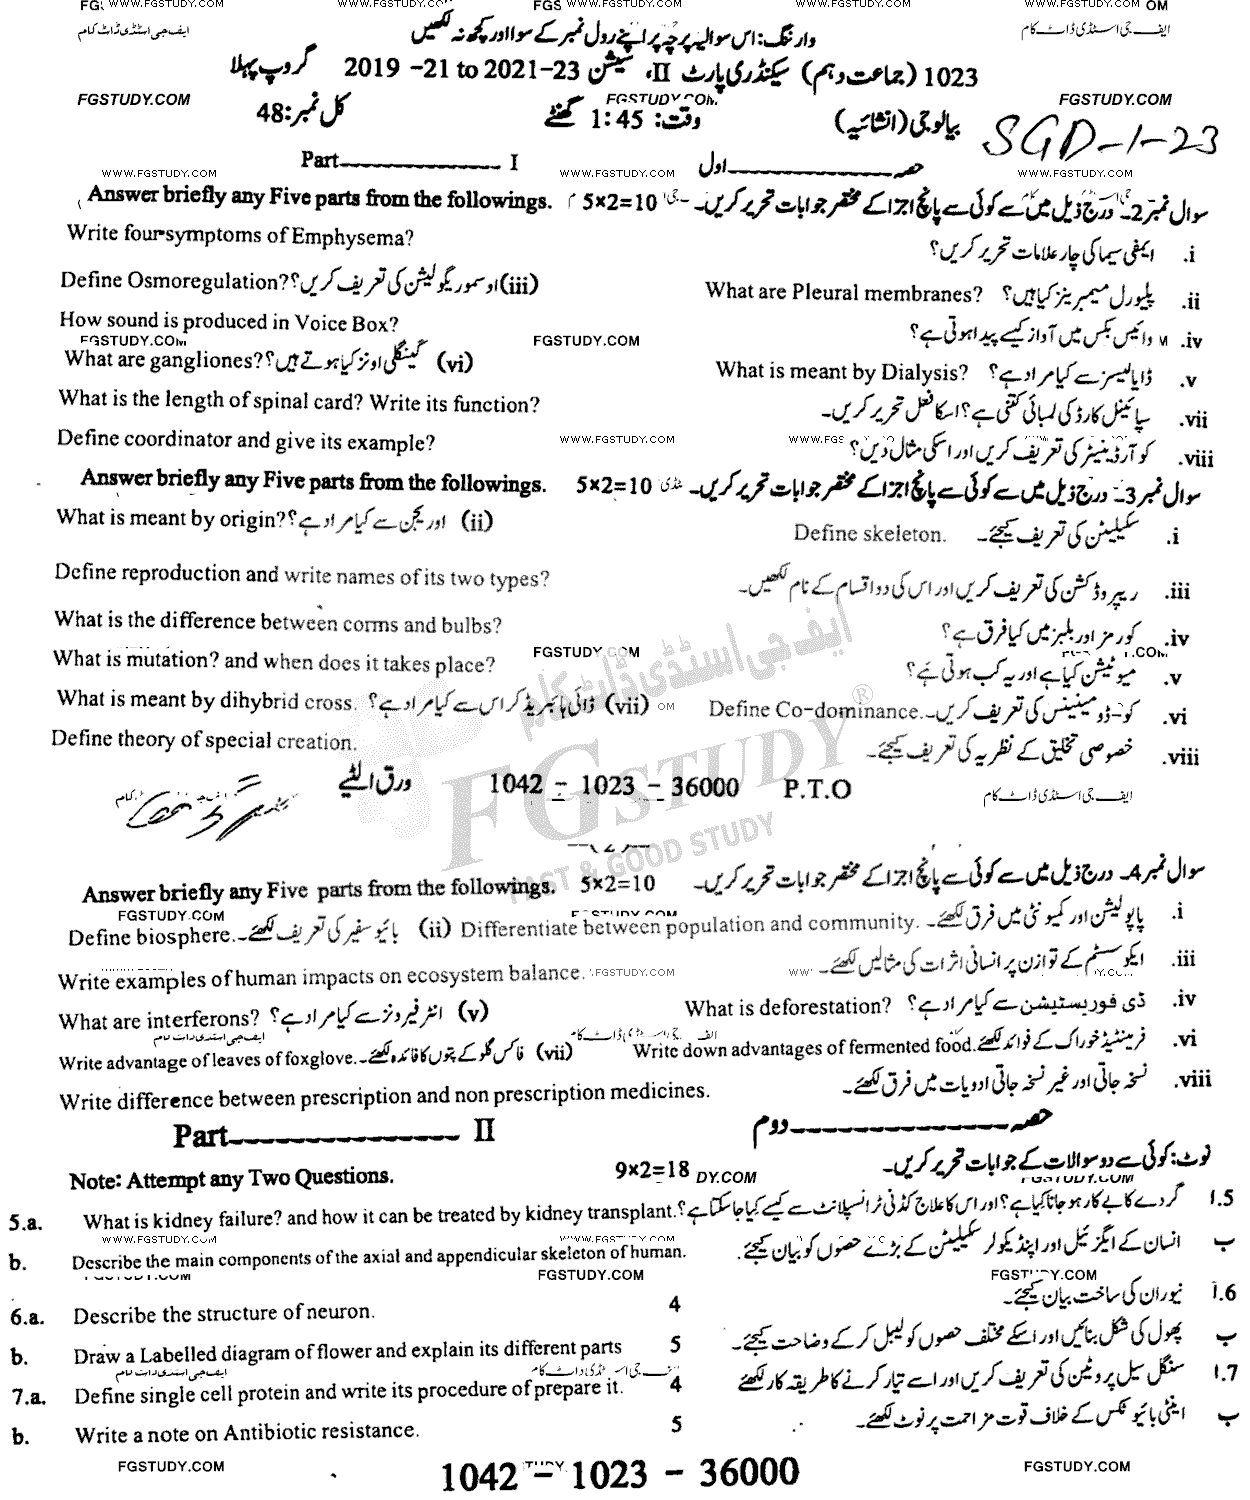 WWW.FGSTUDY.COM
وارننگ: اس سوالیہ پرچہ پر اپنے رول نمبر کے سوا اور کچھ نہ لکھیں
ایف جی اسٹڈی ڈاٹ کام
1023 (جماعت دہم) سیکنڈری پارٹ II، سیشن 2019 -21 to 2021-23 گروپ پہلا
FGSTUDY.COM FGSTUDY.COM FGSTUDY.COM
بیالوجی (انشائیہ) وقت: 1:45 گھنٹے کل نمبر: 48
SGD-1-23
Part I حصہ اول
WWW.FGSTUDY.COM WWW.FGSTUDY.COM WWW.FGSTUDY.COM
Answer briefly any Five parts from the followings. 5×2=10 سوال نمبر 2۔ درج ذیل میں سے کوئی سے پانچ اجزا کے مختصر جوابات تحریر کریں۔
Write four symptoms of Emphysema? ایمفی سیما کی چار علامات تحریر کریں؟ .i
Define Osmoregulation? اوسموریگولیشن کی تعریف کریں؟ (iii) What are Pleural membranes? پلیورل میمبرینز کیا ہیں؟ .ii
How sound is produced in Voice Box? وائیس بکس میں آواز کیسے پیدا ہوتی ہے؟ .iv
FGSTUDY.COM FGSTUDY.COM
What are gangliones? گینگلی اونز کیا ہوتے ہیں؟ (vi) What is meant by Dialysis? ڈایالیسز سے کیا مراد ہے؟ .v
What is the length of spinal card? Write its function? سپائینل کارڈ کی لمبائی کتنی ہے؟ اسکا فعل تحریر کریں۔ .vii
Define coordinator and give its example? کوآرڈینیٹر کی تعریف کریں اور اسکی مثال دیں؟ .viii
Answer briefly any Five parts from the followings. 5×2=10 سوال نمبر 3۔ درج ذیل میں سے کوئی سے پانچ اجزا کے مختصر جوابات تحریر کریں۔
What is meant by origin? اوریجن سے کیا مراد ہے؟ (ii) Define skeleton. سکیلیٹن کی تعریف کیجئے۔ .i
Define reproduction and write names of its two types? ریپروڈکشن کی تعریف کریں اور اس کی دو اقسام کے نام لکھیں۔ .iii
What is the difference between corms and bulbs? کورمز اور بلبز میں کیا فرق ہے؟ .iv
FGSTUDY.COM
What is mutation? and when does it takes place? میوٹیشن کیا ہے اور یہ کب ہوتی ہے؟ .v
What is meant by dihybrid cross. ڈائی ہائبریڈ کراس سے کیا مراد ہے؟ (vii) Define Co-dominance. کو-ڈومینینس کی تعریف کریں۔ .vi
Define theory of special creation. خصوصی تخلیق کے نظریہ کی تعریف کیجئے۔ .viii
ورق الٹیے 1042 – 1023 – 36000 P.T.O
ایف جی اسٹڈی ڈاٹ کام
FGSTUDY ®
FAST & GOOD STUDY
—(2)—
Answer briefly any Five parts from the followings. 5×2=10 سوال نمبر 4۔ درج ذیل میں سے کوئی سے پانچ اجزا کے مختصر جوابات تحریر کریں۔
FGSTUDY.COM FGSTUDY.COM
Define biosphere. بائیوسفیر کی تعریف لکھئے۔ (ii) Differentiate between population and community. پاپولیشن اور کمیونٹی میں فرق لکھئے۔ .i
Write examples of human impacts on ecosystem balance. ایکو سسٹم کے توازن پر انسانی اثرات کی مثالیں لکھئے۔ .iii
What are interferons? انٹرفیرونز سے کیا مراد ہے؟ (v) What is deforestation? ڈی فوریسٹیشن سے کیا مراد ہے؟ .iv
Write advantage of leaves of foxglove. فاکس گلو کے پتوں کا فائدہ لکھئے۔ (vii) Write down advantages of fermented food. فرمینٹیڈ خوراک کے فوائد لکھئے۔ .vi
Write difference between prescription and non prescription medicines. نسخہ جاتی اور غیر نسخہ جاتی ادویات میں فرق لکھئے۔ .viii
Part II حصہ دوم
Note: Attempt any Two Questions. 9×2=18 نوٹ: کوئی سے دو سوالات کے جوابات تحریر کریں۔
5.a. What is kidney failure? and how it can be treated by kidney transplant. گردے کا بے کار ہو جانا کیا ہے؟ اور اس کا علاج کڈنی ٹرانسپلانٹ سے کیسے کیا جا سکتا ہے؟ 5.ا
b. Describe the main components of the axial and appendicular skeleton of human. انسان کے ایگزئیل اور اپنڈیکولر سکیلیٹن کے بڑے حصوں کو بیان کیجئے۔ ب
FGSTUDY.COM FGSTUDY.COM FGSTUDY.COM
6.a. Describe the structure of neuron. 4 نیوران کی ساخت بیان کیجئے۔ 6.ا
b. Draw a Labelled diagram of flower and explain its different parts 5 پھول کی شکل بنائیں اور اسکے مختلف حصوں کو لیبل کر کے وضاحت کیجئے۔ ب
7.a. Define single cell protein and write its procedure of prepare it. 4 سنگل سیل پروٹین کی تعریف کریں اور اسے تیار کرنے کا طریقہ کار لکھئے 7.ا
b. Write a note on Antibiotic resistance. 5 اینٹی بائیوٹکس کے خلاف قوت مزاحمت پر نوٹ لکھئے۔ ب
FGSTUDY.COM FGSTUDY.COM
1042 – 1023 – 36000